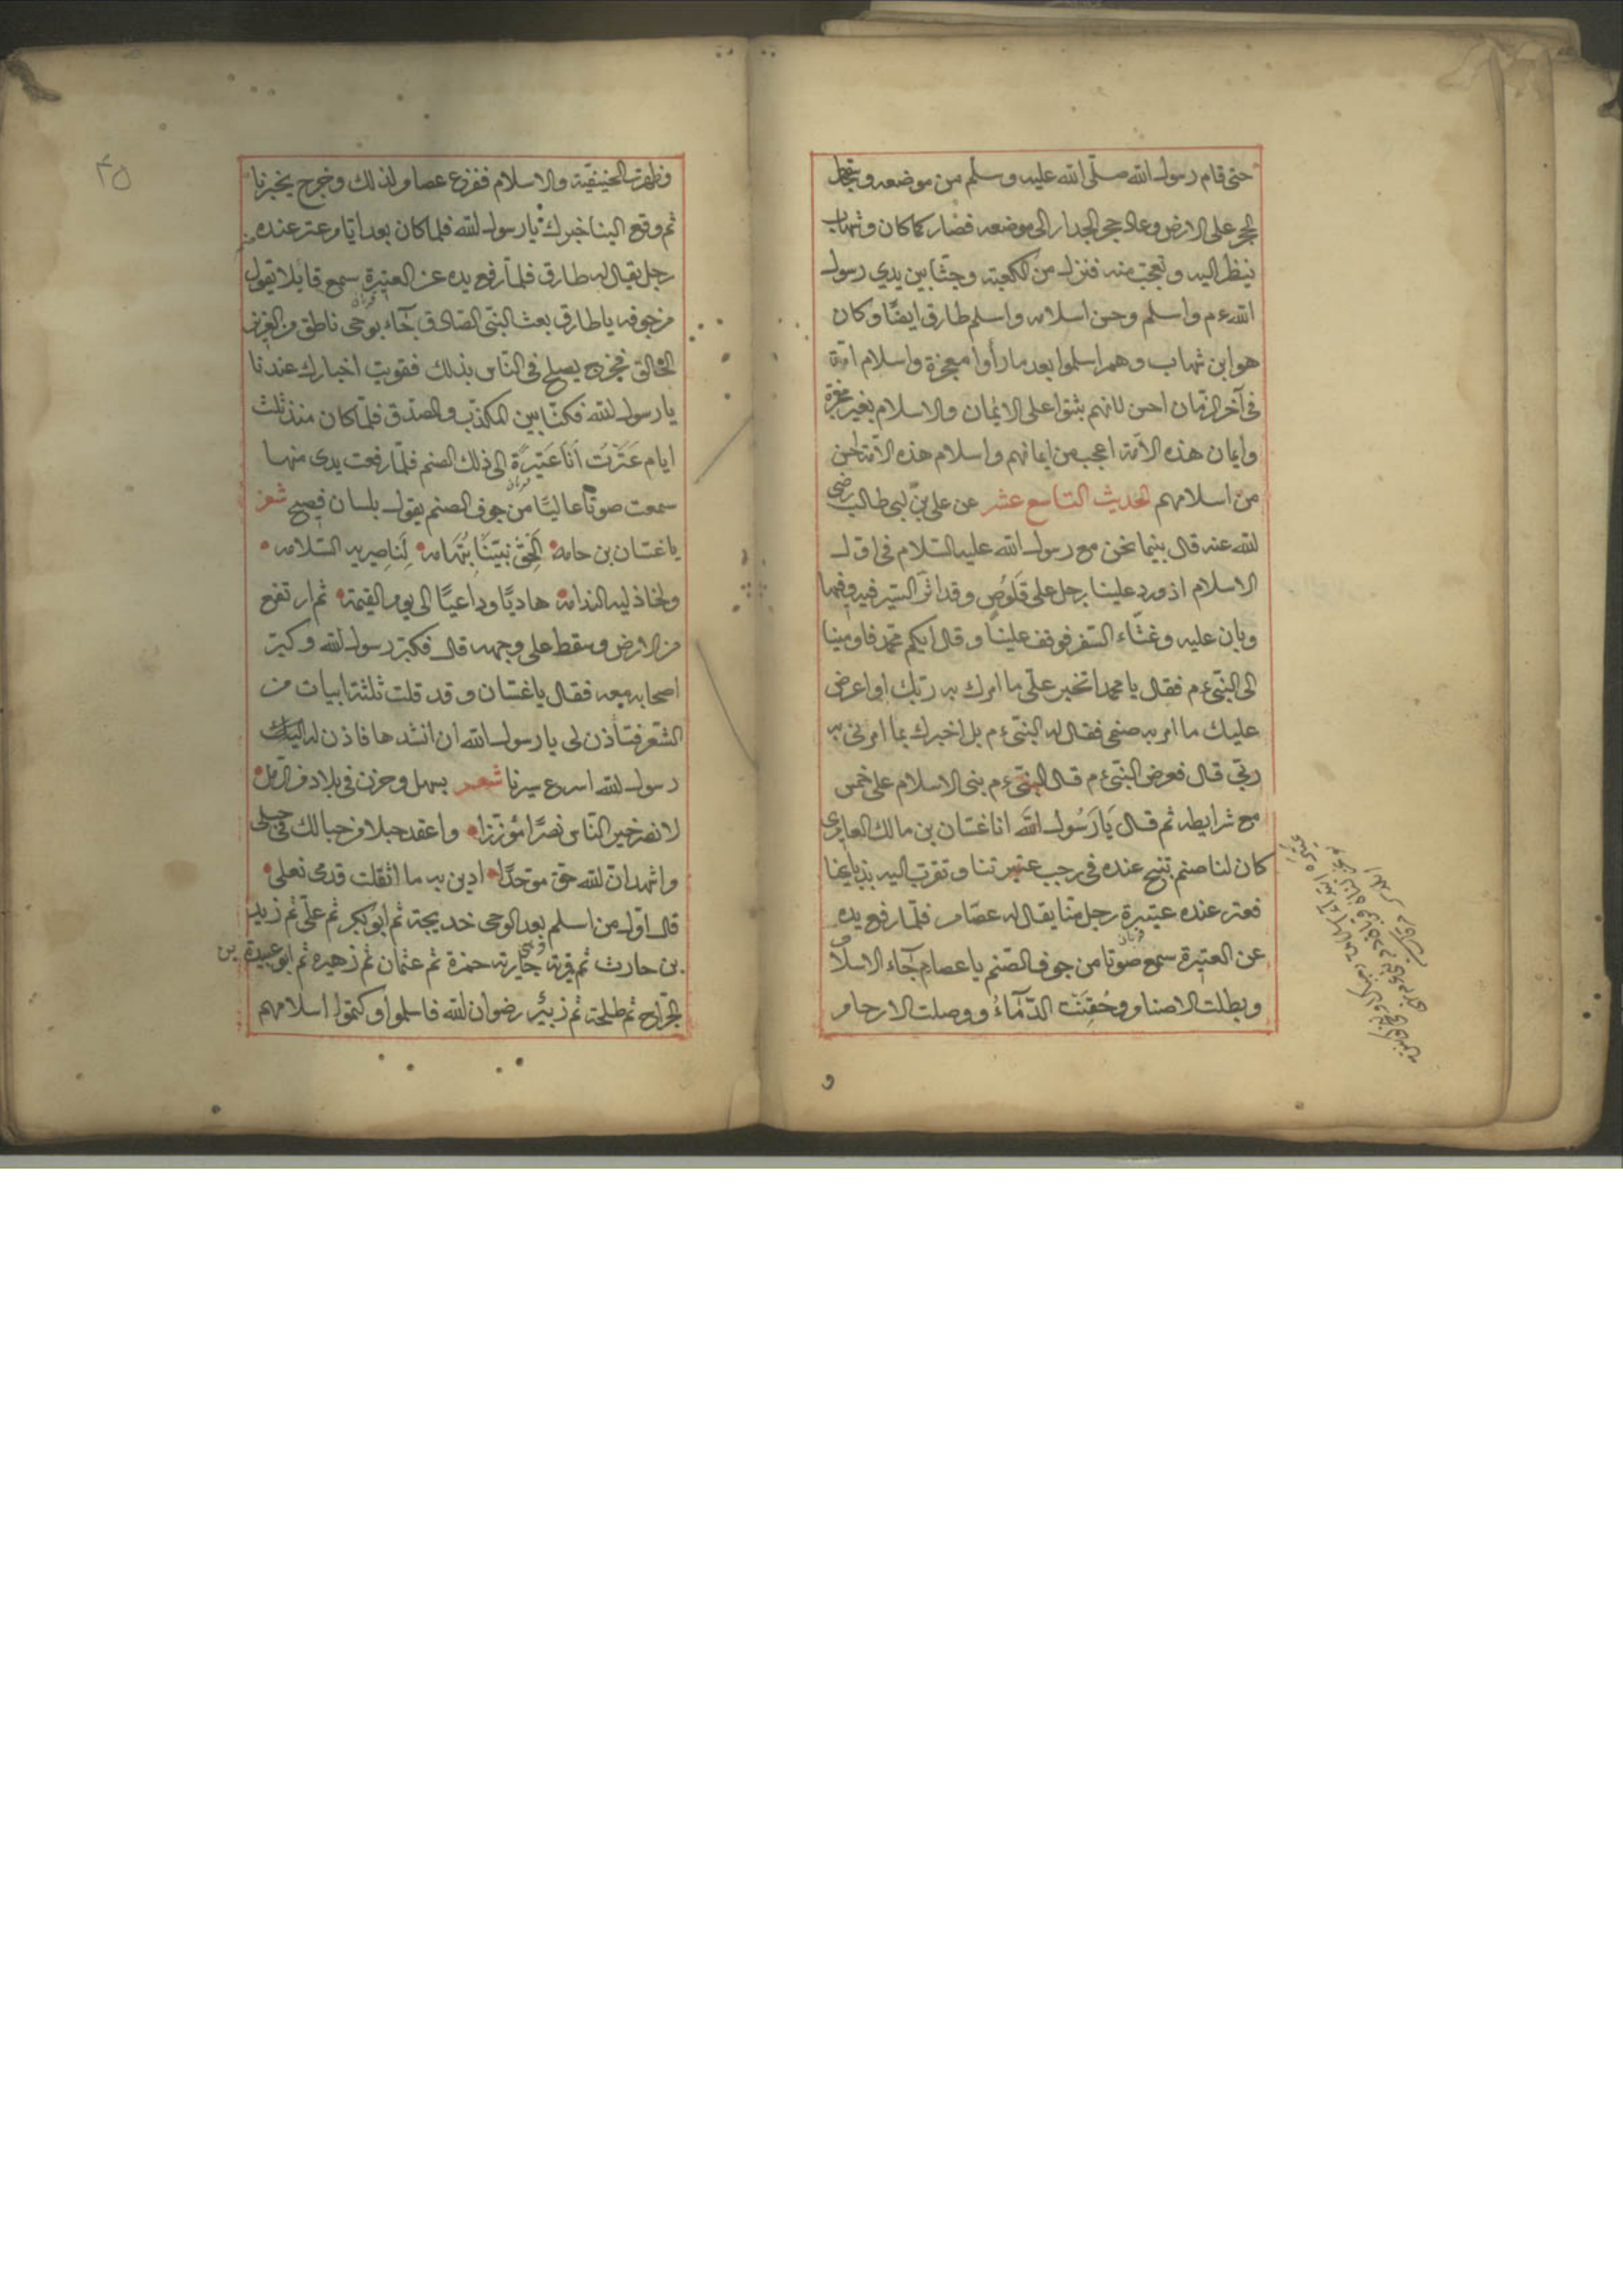 حتى قام رسول الله صلى الله عليه وسلم من موضعه و
الحجر على الارض وعاد حجر الجدار الى موضعه فصار كما كان وشهاب
ينظر اليه وتعجب منه فنزل من الكعبة وجثا بين يدي رسول
الله ءم واسلم وحسن اسلامه واسلم طارق ايضا وكان
هو ابن شهاب وهم اسلموا بعد ما رأوا معجزة واسلام امة
فى آخر الزمان احسن لانهم ثبتوا على الايمان والاسلام بغير معجزة
وايمان هذه الأمة اعجب من ايمانهم واسلام هذه الأمة احسن
من اسلامهم الحديث التاسع عشر عن على بن ابى طالب رضى
الله عنه قال بينما نحن مع رسول الله عليه السلام فى اول
الاسلام اذ ورد علينا رجل على قلوص وقد اثر السير فيه وفيها
وبان عليه وغثاء السفر فوقف علينا وقال ايكم محمد فاومينا
الى النبى ءم فقال يا محمد اتخبر على ما امرك به ربك او اعرض
عليك ما امر به صنمى فقال له النبى ءم بل اخبرك بما امرنى به
ربى قال فعرض النبى ءم قال النبى ءم بنى الاسلام على خمس
مع شرايطه ثم قال يَا رَسُول الله انا غسان بن مالك العامرى
كان لنا صنم تنبح عنده فى رجب عتيرتنا وتقرب اليه بذبايحنا
فعتر عنده عتيرة رجل منا يقال له عصام فلما رفع يده
عن العتيرة سمع صوتا من جوف الصنم يا عصام جآء الاسلام
وبطلت الاصنام وحُقِنَت الدّمآءُ ووصلت الارحام
و
٣٥
وظهرت الحنيفية والاسلام ففزع عصام لذلك وخرج يخبرنا
ثم وقع الينا خبرك يا رسول الله فلما كان بعد ايام عتر عنده
رجل يقال له طارق فلما رفع يده عن العتيرة سمع قايلا يقول
من جوفه يا طارق بعث النبى الصادق جآء بوحى ناطق من العزيز
الخالق فخرج يصلح فى الناس بذلك فقويت اخبارك عندنا
يا رسول الله فكنا بين المكذب والمصدق فلما كان منذ ثلث
ايام عَتَرْت أنَا عَتيرَة الى ذلك الصنم فلما رفعت يدى منها
سمعت صوتا عاليا من جوف الصنم يقول بلسان فصيح شعر
يا غسان بن حامه الحق نبيّنَا بتهامه لِناصِريه السّلامه
ولخاذليه الندامة هاديا وداعيا الى يوم القيمة ثم ارتفع
من الارض وسقط على وجهه قال فكبر رسول الله وكبر
اصحابه معه فقال يا غسان وقد قلت ثلثة ابيات من
الشعر فتأذن لى يا رسول الله ان انشدها فاذن له اليك
رسول الله اسرع سيرنا شعر بسهل وحزن فى بلاد من الرمل
لانصر خير الناس نصرًا مؤزّرا واعقد حبلا من حبالك فى حبلى
واشهد ان الله حق موحدًا ادين به ما اثقلت قدمى نعلى
قال اول من اسلم بعد الوحى خديجة ثم ابو بكر ثم على ثم زيد
بن حارث ثم حمزة ثم عثمان ثم زهيره ثم ابو عبيدة بن
الجراح ثم طلحة ثم زبير رضوان الله فاسلموا وكتموا اسلامهم